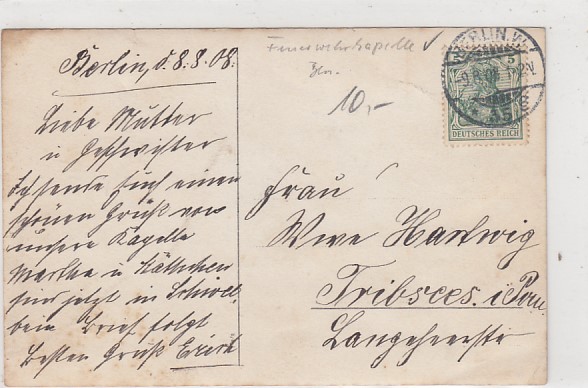 Berlin, d. 8.8.08.
Liebe Mutter
u Geschwister
Ich sende Euch einen
schönen Gruß von
unsere Kapelle
Martha u Käthchen
sind jetzt in
Brief folgt
Besten Gruß Erich
Feuerwehrkapelle
Bln.
10,-
BERLIN.W.
DEUTSCHES REICH
Frau
Wwe Hartwig
Tribsees. i Pom.
Langeheerstr